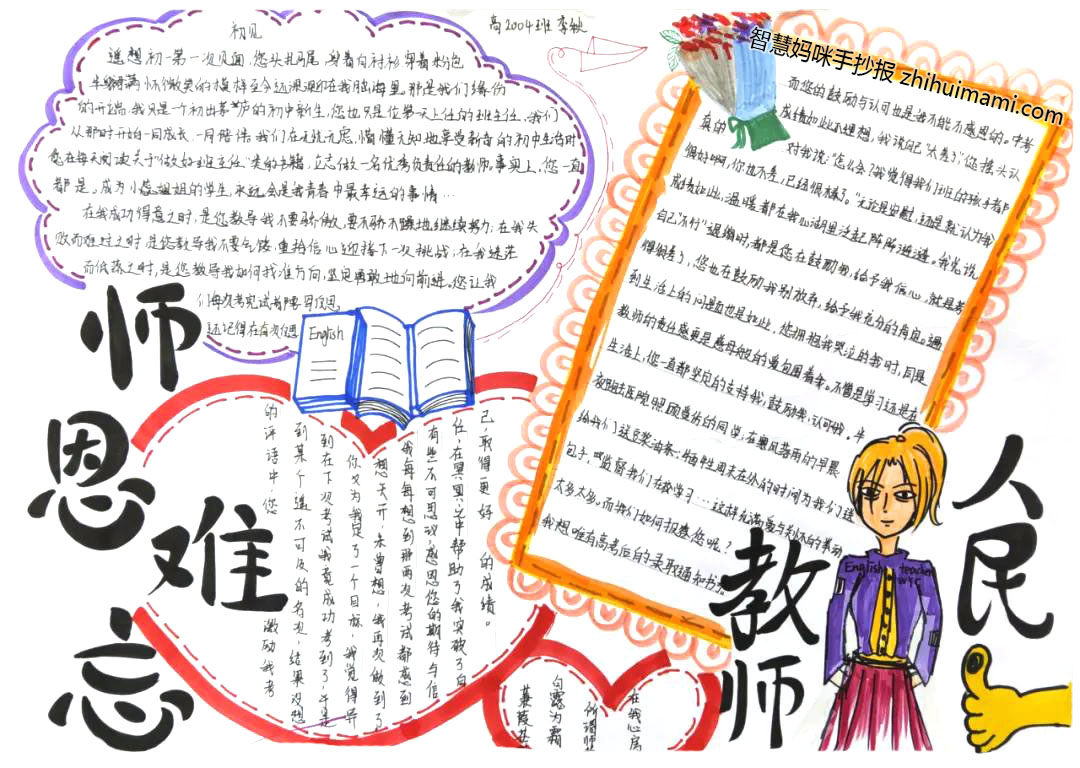 初见
高2004班 李
智慧妈咪手抄报 zhihuimami.com
遥想初一第一次见面,您头扎马尾,身着白衬衫,穿着粉包
半裙,满怀微笑的模样至今还深深印在我脑海里,那是我们缘份
的开端,我只是一个初出茅庐的初中新生,您也只是位第一天上任的班主任,我们
从那时开始一同成长,一同陪伴。我们在无忧无虑,懵懂无知地享受新奇的初中生活时
您在每天阅读关于"做好班主任"类的书籍,立志做一名优秀负责任的教师,事实上,您一直
都是。成为小您姐姐的学生,永远会是我青春中最幸运的事情…
在我成功得意之时,是您教导我不要骄傲,要不骄不躁地继续努力;在我失
败而难过之时,是您教导我不要气馁,重拾信心迎接下一次挑战;在我迷茫
而低落之时,是您教导我如何找准方向,坚定勇敢地向前进。您让我
们每次考试
还记得在
English
师恩难忘
已,取得更好的成绩。
任,在冥冥之中帮助了我突破了自
有些不可思议,感恩您的期待与信
我每每想到那两次考试都感到
想天开,未曾想,我再次做到了
你又为我定了一个目标,我觉得异
到在下次考试我竟成功考到了
到某个遥不可及的名次,结果没想
的评语中,您激励我考
而您的鼓励与认可也是我不能不感恩的。中考
成绩如此不理想,我说自己"太差了",您摇头认
真的对我说:"怎么会?我觉得我们班的孩子都
很好啊,你也不差,已经很棒了。"无论是安慰,还是默认为我
成绩如此,温暖都在我心湖里泛起阵阵涟漪。我先说
自己"不行"退缩时,都是您在鼓励我,给予我信心,就是考
得很差了,您也在鼓励我别放弃,给予我充分的肯定。遇
到生活上的问题也是如此,您拥抱我哭泣的我时,同是
教师的责任感更是慈母般的爱包围着我。不管是学习还是在
生活上,您一直都坚定的支持我,鼓励我,认可我。半
夜陪去医院照顾受伤的同学;在飘风落雨的早晨
给我们送豆浆油条;牺牲周末在外的时间为我们送
包子,监督我们在校学习…这样充满爱与关怀的举动
太多太多。而我们如何报答您呢?
我想唯有高考后的录取通知书。
English teacher
WYC
人民教师
在我心房
所谓师
白露为霜
蒹葭苍